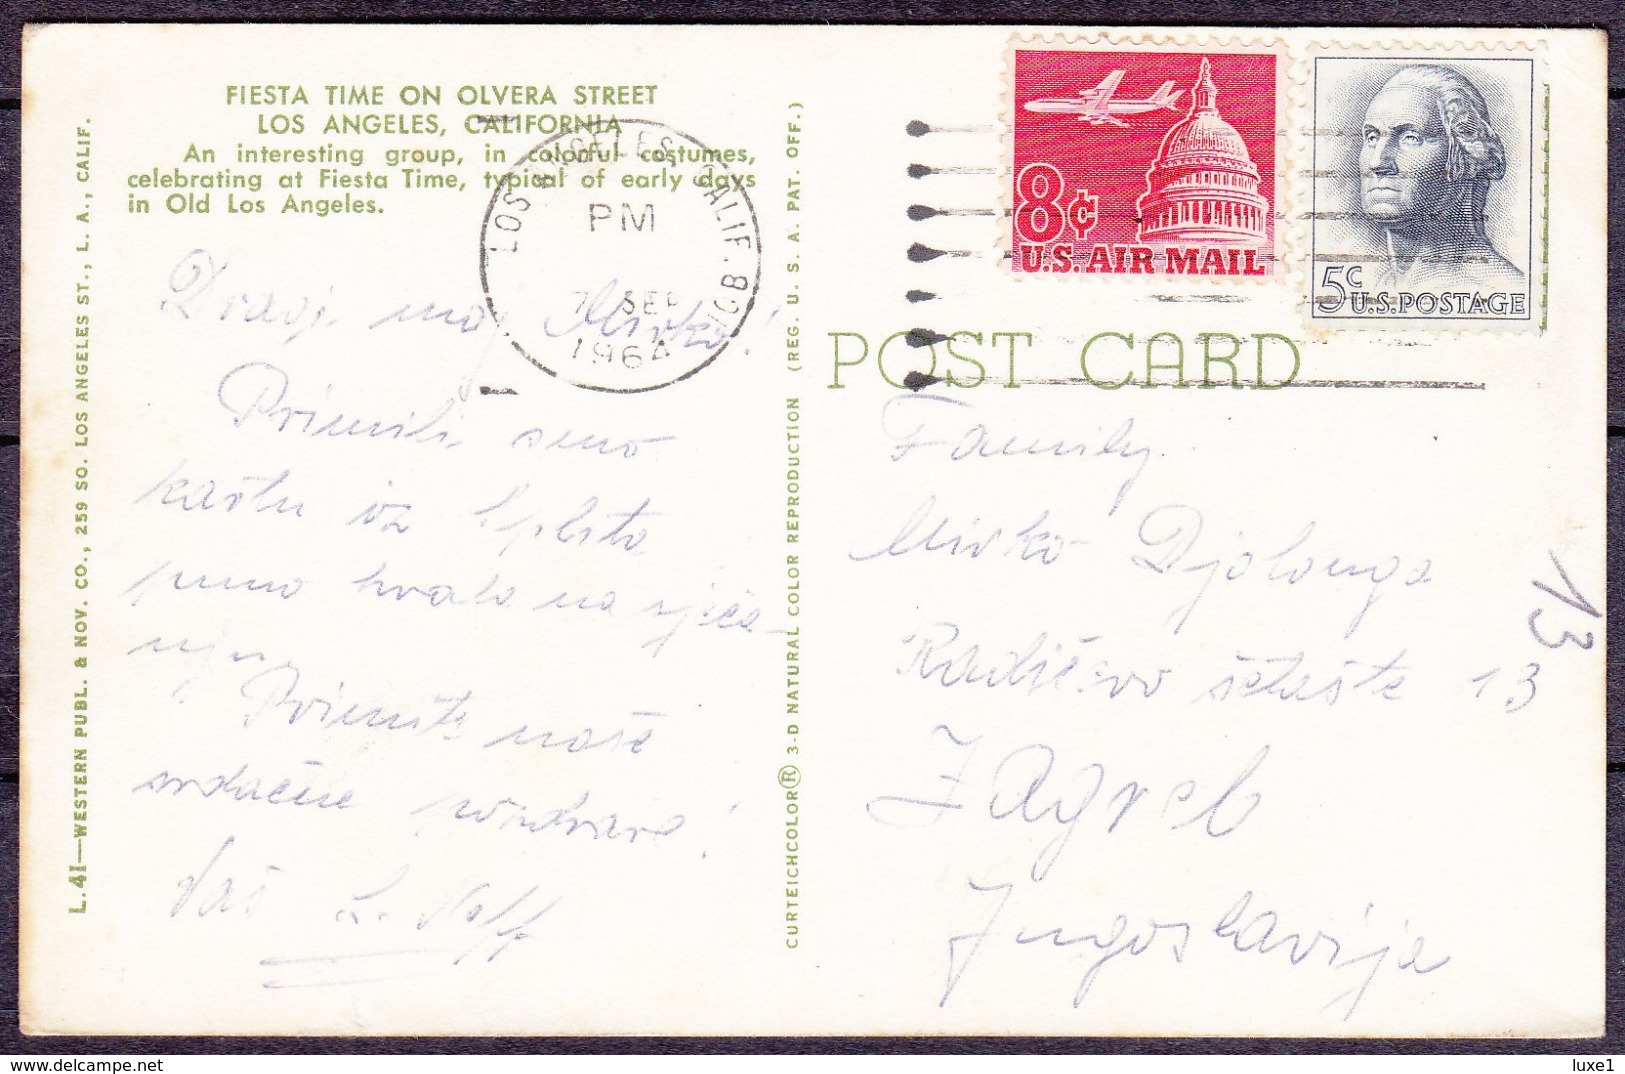 FIESTA TIME ON OLVERA STREET
LOS ANGELES, CALIFORNIA
An interesting group, in colorful costumes,
celebrating at Fiesta Time, typical of early days
in Old Los Angeles.
L.41—WESTERN PUBL. & NOV. CO., 259 SO. LOS ANGELES ST., L. A., CALIF.
LOS ANGELES, CALIF.
PM
7 SEP
1964
8¢
U.S. AIR MAIL
5c
U.S. POSTAGE
POST CARD
CURTEICHCOLOR® 3-D NATURAL COLOR REPRODUCTION (REG. U. S. A. PAT. OFF.)
Dragi moj Mirko!
Primili smo
kartu iz Splita
puno hvala na sjeća-
nju
Primite naše
srdačne pozdrave!
Vaš
Family
Mirko Djolonga
Radićevo šetašte 13
Zagreb
Jugoslavija
13
luxe1